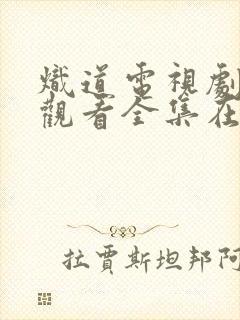 熾道電視劇
觀看全集在
拉賈斯坦邦阿